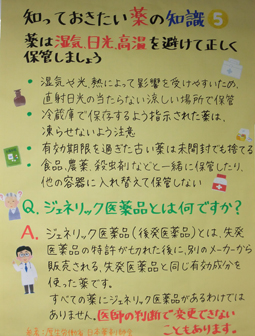 知っておきたい薬の知識5
薬は湿気、日光、高温を避けて正しく
保管しましょう
・湿気や光、熱によって影響を受けやすいため、
直射日光の当たらない涼しい場所で保管
・冷蔵庫で保存するよう指示された薬は、
凍らせないよう注意
・有効期限を過ぎた古い薬は未開封も捨てる
・食品、農薬、殺虫剤などと一緒に保管したり、
他の容器に入れ替えて保管しない
Q. ジェネリック医薬品とは何ですか?
A. ジェネリック医薬品(後発医薬品)とは、先発
医薬品の特許が切れた後に、別のメーカーから
販売される、先発医薬品と同じ有効成分を
使った薬です。
すべての薬にジェネリック医薬品があるわけでは
ありません。医師の判断で変更できない
こともあります。